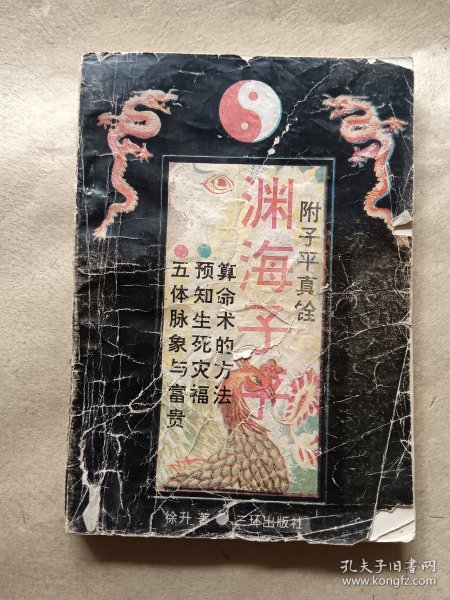 附子平真诠
渊海子平
算命术的方法
预知生死灾福
五体脉象与富贵
徐升 著 三环出版社
孔夫子旧书网
www.kongfz.com